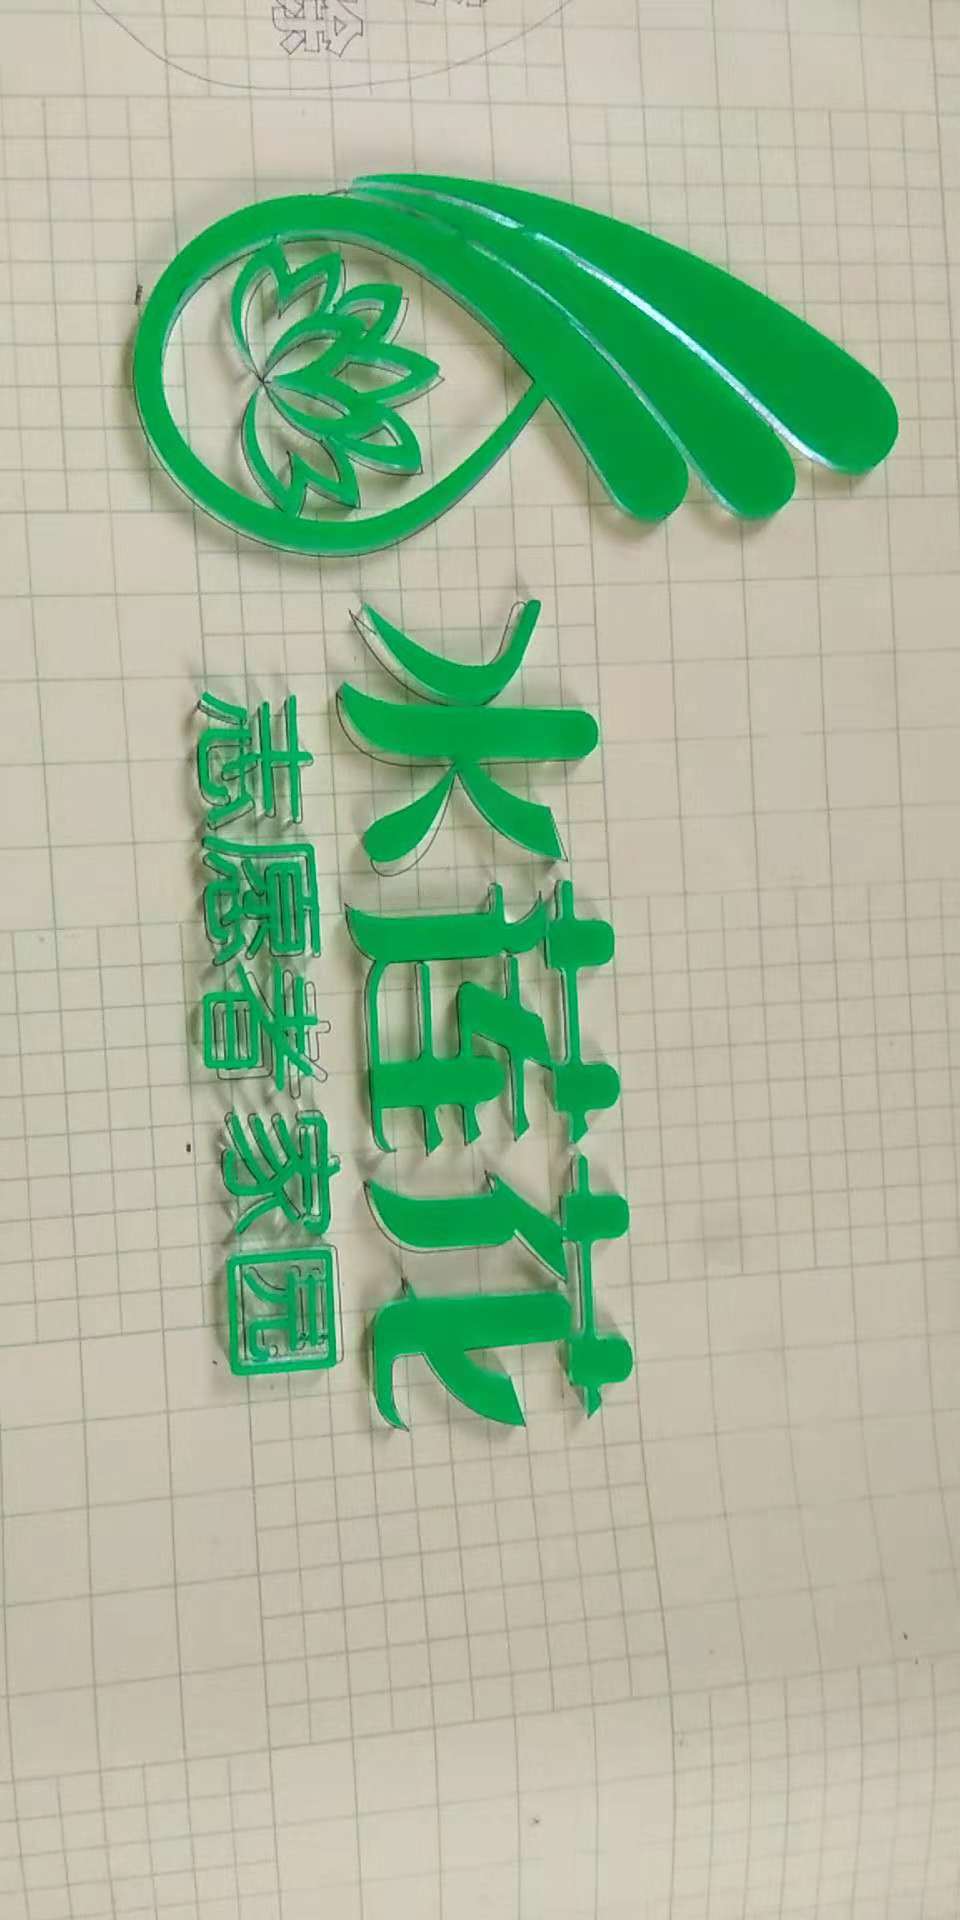 水莲花
志愿者家园